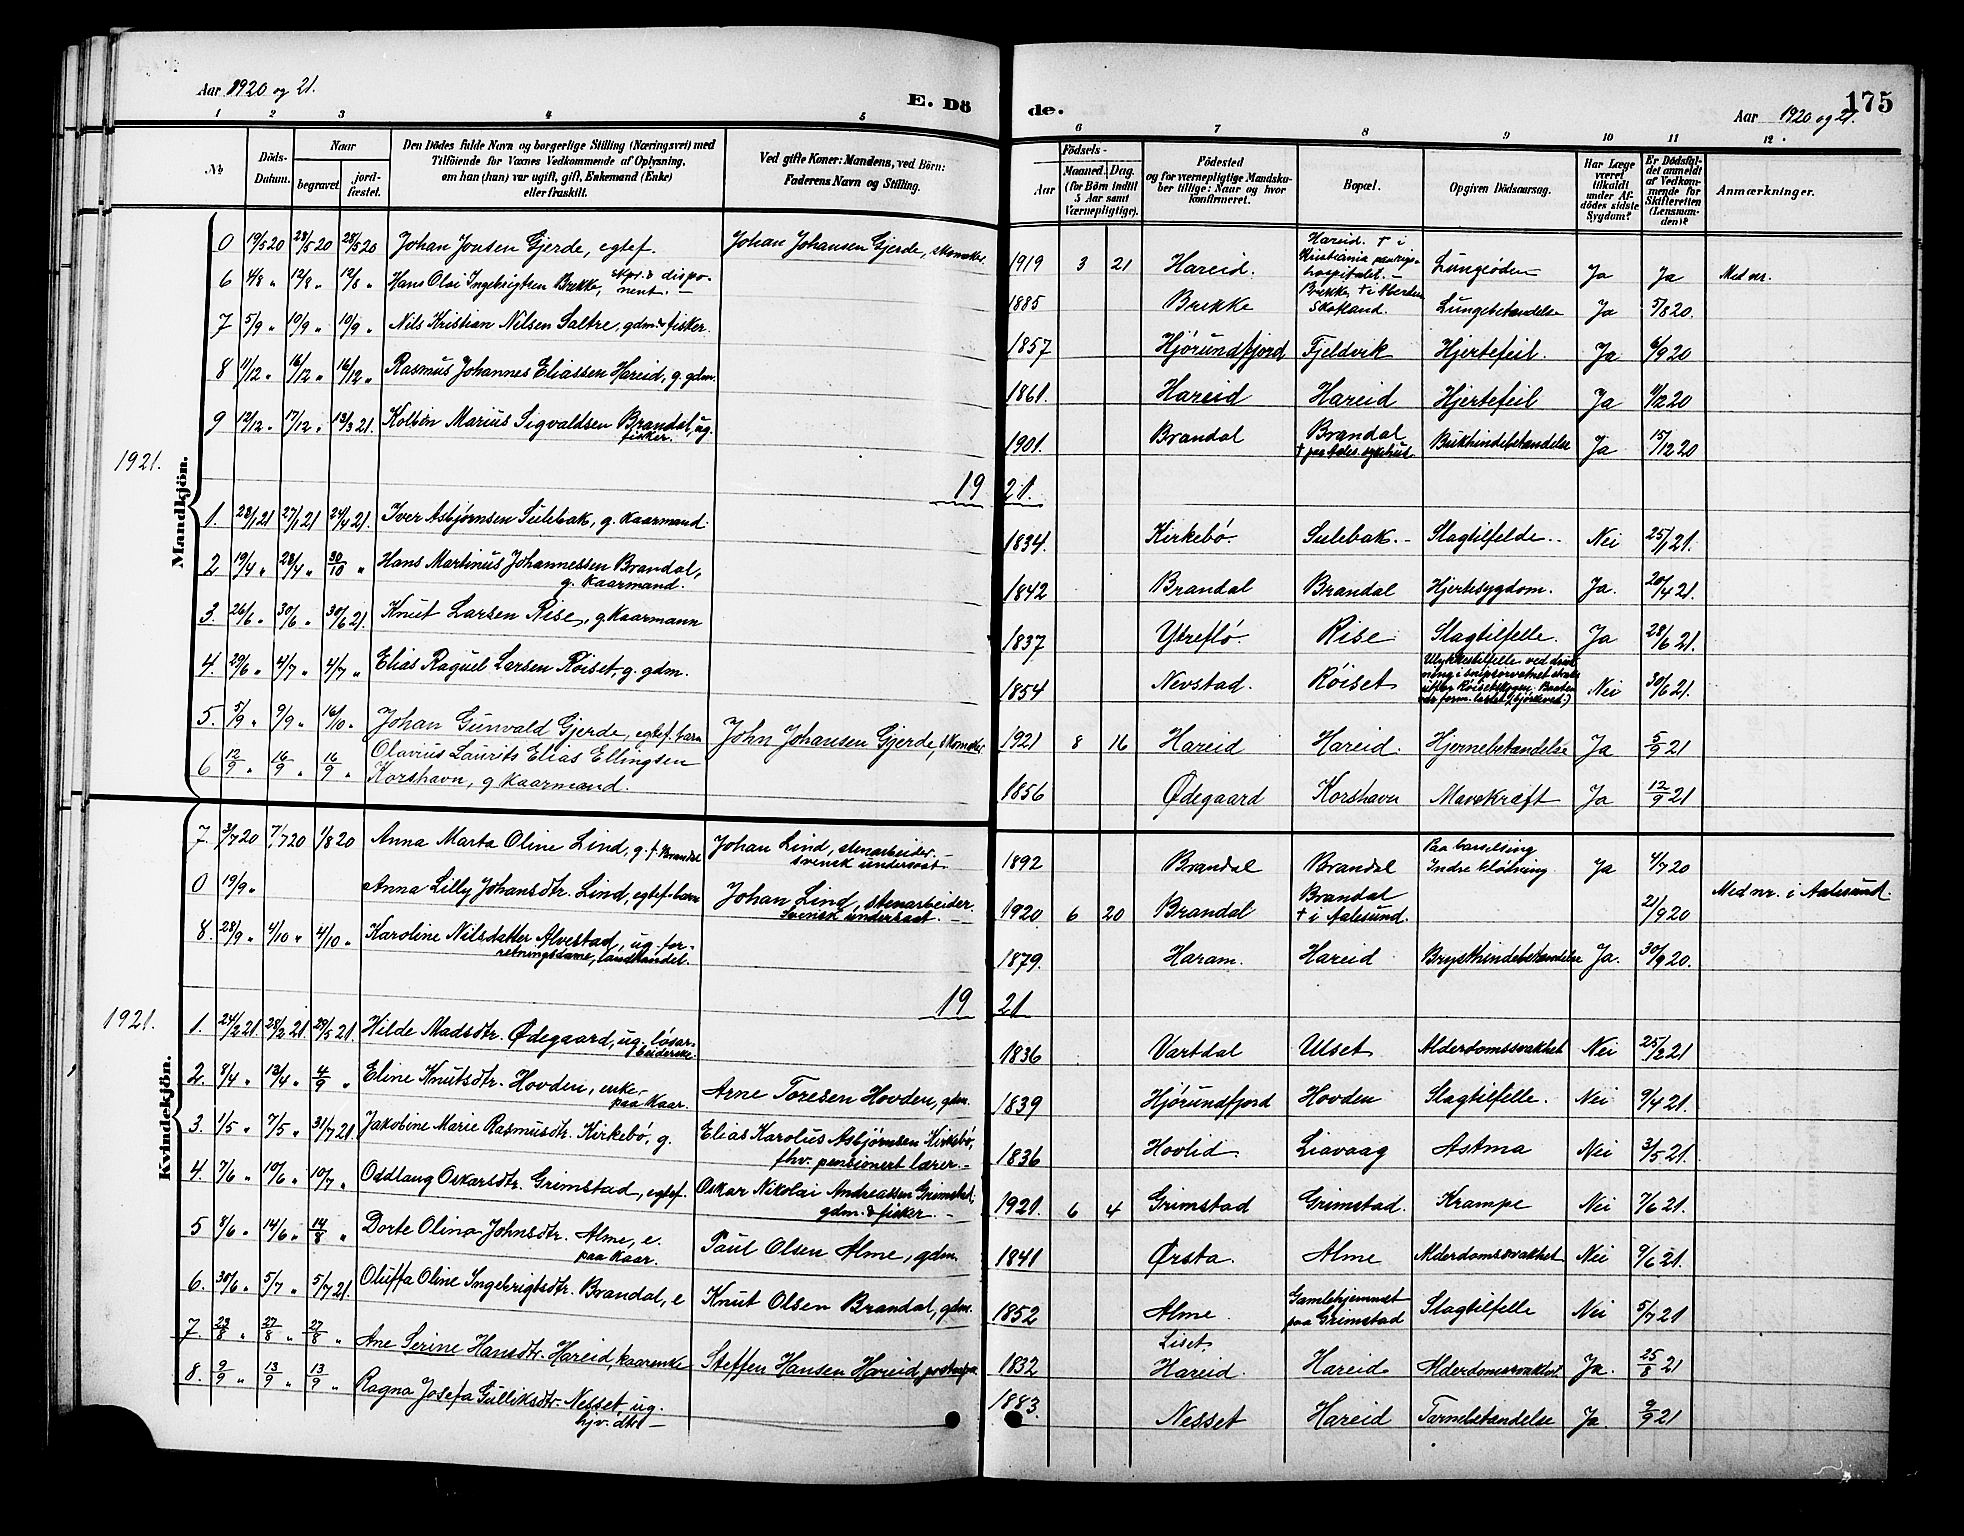 Aar 1920 og 21.
E. Dö
de.
Aar 1920 og 21.
175
1 2 3 4 5 6 7 8 9 10 11 12
№
Döds-Datum.
Naar
begravet
jordfæstet.
Den Dödes fulde Navn og borgerlige Stilling (Næringsvei) med
Tilföiende for Voxnes Vedkommende af Oplysning,
om han (hun) var ugift, gift, Enkemand (Enke)
eller fraskilt.
Ved gifte Koner: Mandens, ved Börn:
Faderens Navn og Stilling.
Födsels-
Aar
Maaned. Dag.
(for Börn indtil
5 Aar samt
Værnepligtige).
Födested
og for værnepligtige Mandskaber tillige: Naar og hvor
konfirmeret.
Bopæl.
Opgiven Dödsaarsag.
Har Læge
været
tilkaldt
under Afdödes sidste
Sygdom?
Er Dödsfaldet anmeldt
af Vedkommende for
Skifteretten
(Lensmanden)?
Anmærkninger.
Mandkjön.
0 19/5 20 28/5 20 28/5 20 Johan Jonsen Gjerde, egtef. Johan Johansen Gjerde, skomaker 1919 3 21 Hareid. Hareid. † i Kristiania hospitalet. Lungeöden Ja Ja Med nr.
6 4/8 " 12/8 " 12/8 " Hans Olai Ingebrigtsen Brekke, skpr. & disponent. 1885 Brekke Brekke, † i Skotland. Lungebetændelse Ja 5/8 20.
7 5/9 " 10/9 " 10/9 " Nils Kristian Nilsen Saltre, gdm. & fisker. 1857 Hjørundfjord Fjeldvik Hjertefeil. Ja 6/9 20
8 11/12 " 16/12 " 16/12 " Rasmus Johannes Eliassen Hareid, g. gdm. 1861. Hareid Hareid Hjertefeil Ja 11/12 20
9 12/12 " 17/12 " 13/3 21. Kolbén Marius Sigvaldsen Brandal, ug. fisker. 1901. Brandal Brandal † paa Aales. sykehus Bukhindebetændelse Ja 15/12 20
1921. 19 21.
1. 23/1 21 27/1 21 24/4 21. Iver Asbjørnsen Sulebak, g. kaarmand. 1834. Kirkebø. Sulebak. Slagtilfelde. Nei 25/1 21.
2 19/4 " 28/4 " 30/10 " Hans Martinus Johannessen Brandal, g. kaarmand. 1842 Brandal Brandal Hjertesygdom. Ja. 20/4 21.
3. 26/6 " 30/6 " 30/6 21. Knut Larsen Rise, g. kaarmann 1837 Ytreflø. Rise Slagtilfelle. Ja 28/6 21.
4. 29/6 " 4/7 " 4/7 " Elias Raguel Larsen Røiset, g. gdm. 1854 Nevstad. Røiset Ulykkestilfelle ved Nei 30/6 21.
5. 5/9 " 9/9 " 16/10 " Johan Gunvald Gjerde, egtef. barn John Johansen Gjerde, skomaker 1921 8 16 Hareid Hareid. Hjernebetændelse Ja 5/9 21
6 12/9 " 16/9 " 16/9 " Olavius Laurits Elias Ellingsen
Korshavn, g kaarmand. 1856 Ødegaard Korshavn Mavekræft Ja 12/9 21
Kvindekjön.
7. 3/7 20 7/7 20 1/8 20 Anna Marta Oline Lind, g. f. Brandal Johan Lind, stenarbeider. svensk undersåt. 1892 Brandal Brandal Paa barselseng Indre blødning Ja 4/7 20
0 19/9 " Anna Lilly Johansdtr. Lind, egtef. barn Johan Lind, stenarbeider. Svensk undersaat. 1920 6 20 Brandal Brandal † i Aalesund. 21/9 20 Med nr. i Aalesund.
8. 28/9 " 4/10 " 4/10 " Karoline Nilsdatter Alvestad, ug. forretningsdame, landhandel. 1879. Haram. Hareid Brysthindebetændelse Ja. 30/9 20.
1921. 19 21
1. 24/2 21 28/2 21 29/5 21. Hilde Madsdtr. Ødegaard, ug. løsarbeiderske. 1836 Vartdal Ulset Alderdomssvakhet Nei 25/2 21
2. 8/4 " 13/4 " 4/9 " Eline Knutsdtr. Hovden, enke, paa kaar. Arne Toresen Hovden, gdm. 1839 Hjørundfjord Hovden Slagtilfelle. Nei 9/4 21.
3. 1/5 " 7/5 " 31/7 21. Jakobine Marie Rasmusdtr. Kirkebø, g. Elias Karolus Asbjørnsen Kirkebø, fhv. pensionert lærer. 1836 Hovlid Liavaag Astma Nei 3/5 21.
4. 7/6 " 10/6 " 10/7 " Oddlaug Oskarsdtr. Grimstad, egtef. Oskar Nikolai Andreassen Grimstad gdm. & fisker. 1921. 6 4 Grimstad Grimstad. Krampe Nei 7/6 21.
5 8/6 " 14/6 " 14/8 " Dorte Olina Johnsdtr. Alme, e. paa kaar. Paul Olsen Alme, gdm. 1841 Ørsta. Alme Alderdomssvakhet Nei 9/6 21.
6. 30/6 " 5/7 " 5/7 21. Oluffa Oline Ingebrigtsdtr. Brandal, e Knut Olsen Brandal, gdm. 1852 Alme. Gamlehjemmet paa Grimstad Slagtilfelle Nei 5/7 21
7. 23/8 " 27/8 " 27/8 " Ane Serine Hansdtr. Hareid, kaarenke Steffen Hansen Hareid, 1832 Liset Hareid. Hareid Alderdomssvakhet. Ja. 25/8 21
8. 9/9 " 13/9 " 13/9 " Ragna Josefa Gulliksdtr. Nesset ug. hjv. dtr. 1883. Nesset Hareid Tarmbetændelse Ja. 9/9 21